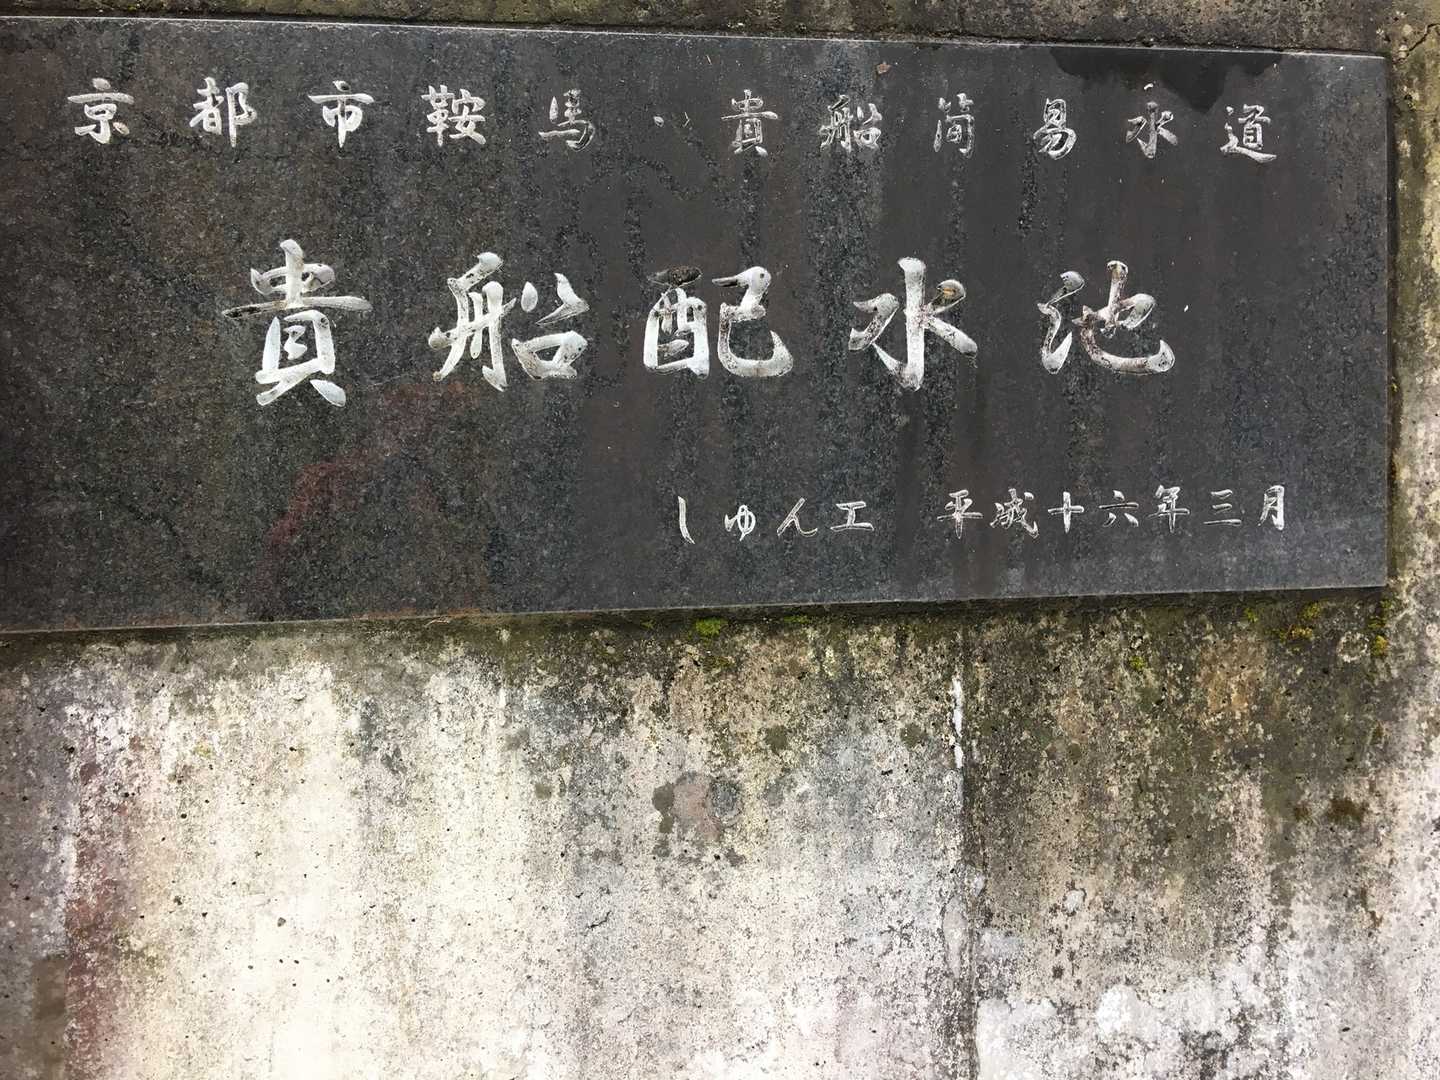 京都市鞍馬・貴船简易水道
貴船配水池
しゅん工 平成十六年三月